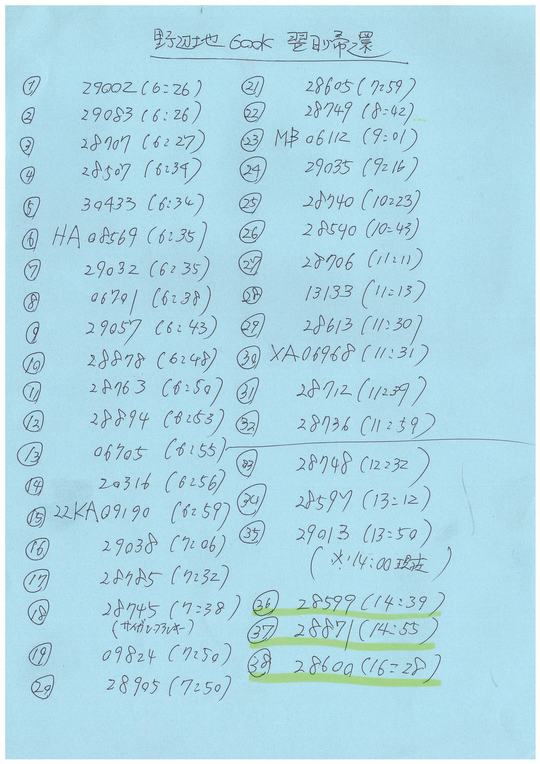 野辺地 600K 翌日帰還
① 29002 (6:26)
② 29083 (6:26)
③ 28707 (6:27)
④ 28507 (6:34)
⑤ 30433 (6:34)
⑥ HA 08569 (6:35)
⑦ 29032 (6:35)
⑧ 06701 (6:38)
⑨ 29057 (6:43)
⑩ 28878 (6:48)
⑪ 28763 (6:50)
⑫ 28894 (6:53)
⑬ 06705 (6:55)
⑭ 20316 (6:56)
⑮ 22KA 09190 (6:59)
⑯ 29038 (7:06)
⑰ 28785 (7:32)
⑱ 28745 (7:38)
⑲ 09824 (7:50)
⑳ 28905 (7:50)
㉑ 28605 (7:59)
㉒ 28749 (8:42)
㉓ MB 06112 (9:01)
㉔ 29035 (9:16)
㉕ 28740 (10:23)
㉖ 28540 (10:43)
㉗ 28706 (11:11)
㉘ 13133 (11:13)
㉙ 28613 (11:30)
㉚ XA 06968 (11:31)
㉛ 28712 (11:39)
㉜ 28736 (11:59)
㉝ 28748 (12:32)
㉞ 28597 (13:12)
㉟ 29013 (13:50)
(※14:00現在)
㊱ 28599 (14:39)
㊲ 28871 (14:55)
㊳ 28600 (16:28)